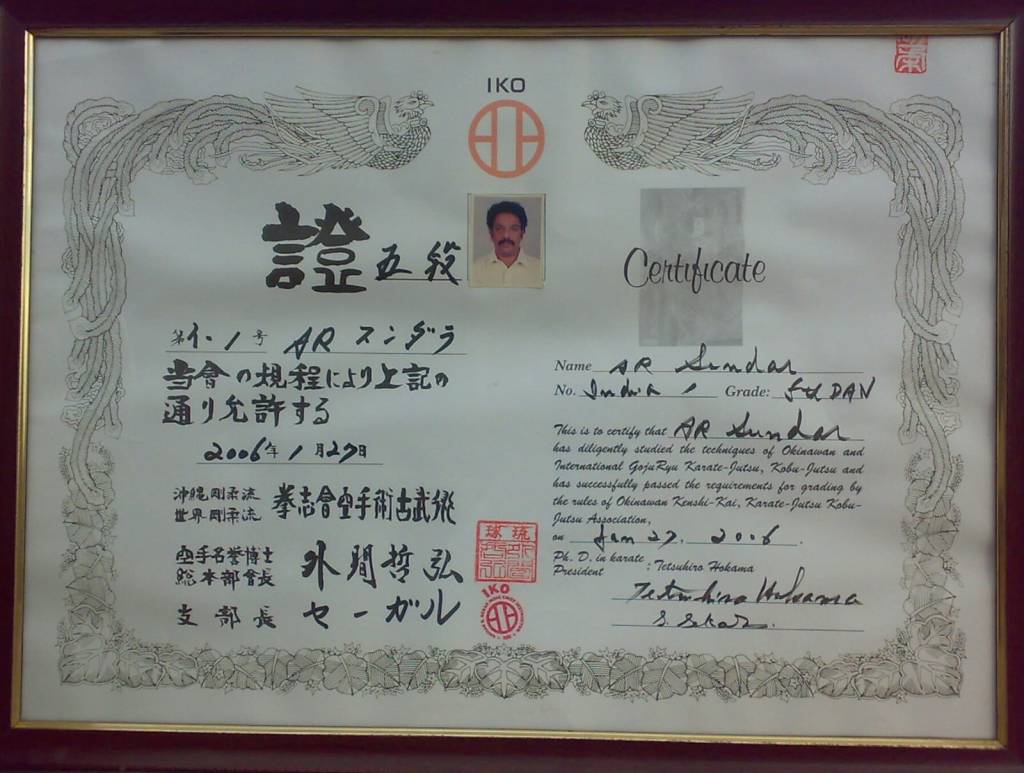 IKO
證 五段
第1-1号 AR スンダラ
当會の規程により上記の
通り允許する
2006年1月27日
沖縄剛柔流
世界剛柔流 拳志會空手術古武術
空手名誉博士
総本部會長 外間哲弘
支部長 セーガル
IKO
Certificate
Name AR Sundar
No. India 1 Grade: 5th DAN
This is to certify that AR Sundar
has diligently studied the techniques of Okinawan and
International GojuRyu Karate-Jutsu, Kobu-Jutsu and
has successfully passed the requirements for grading by
the rules of Okinawan Kenshi-Kai, Karate-Jutsu Kobu-
Jutsu Association,
on Jan 27. 2006.
Ph. D. in karate
President : Tetsuhiro Hokama
Tetsuhiro Hokama
S. Sekar.